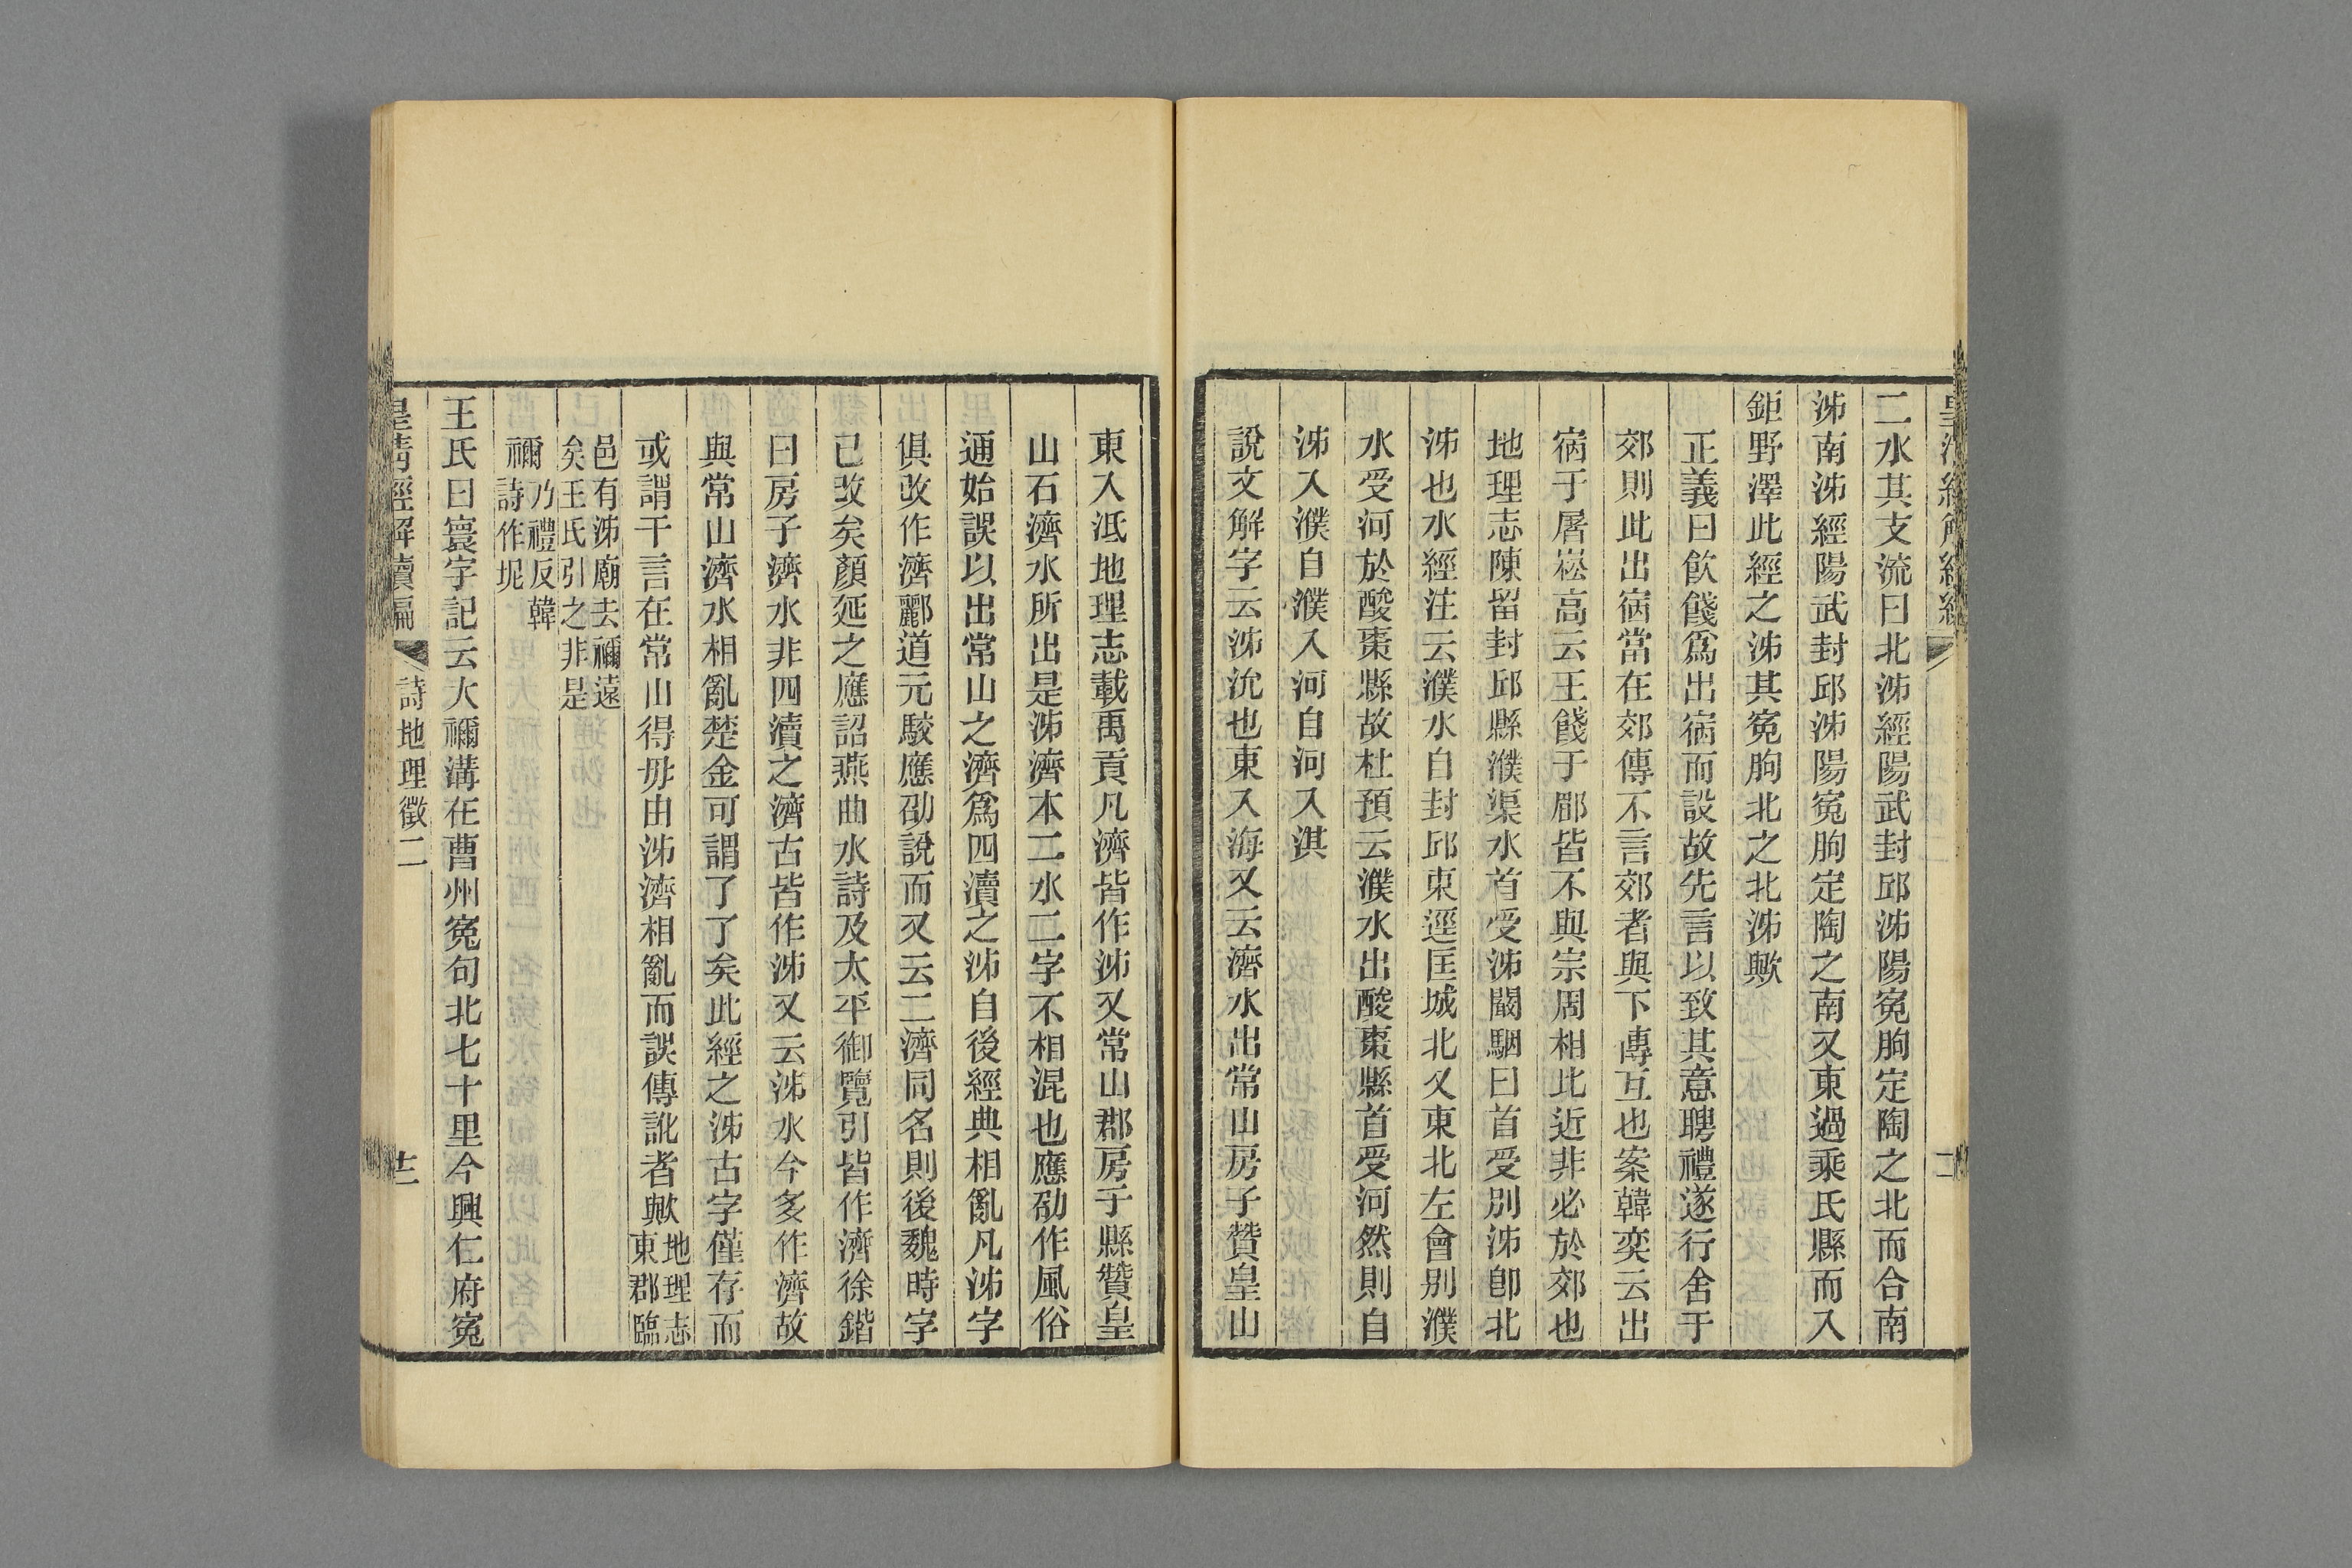 二水其支流曰北泲經陽武封邱泲陽寃朐定陶之北而合南
泲南泲經陽武封邱泲陽寃朐定陶之南又東過乘氏縣而入
鉅野澤此經之泲其寃朐北之北泲歟
正義曰飲餞爲出宿而設故先言以致其意聘禮遂行舍于
郊則此出宿當在郊傳不言郊者與下傳互也案韓奕云出
宿于屠崧高云王餞于郿皆不與宗周相比近非必於郊也
地理志陳留封邱縣濮渠水首受泲闞駰曰首受別泲卽北
泲也水經注云濮水自封邱東逕匡城北又東北左會別濮
水受河於酸棗縣故杜預云濮水出酸棗縣首受河然則自
泲入濮自濮入河自河入淇
說文解字云泲沇也東入海又云濟水出常山房子贊皇山
東入泜地理志載禹貢凡濟皆作泲又常山郡房子縣贊皇
山石濟水所出是泲濟本二水二字不相混也應劭作風俗
通始誤以出常山之濟爲四瀆之泲自後經典相亂凡泲字
俱改作濟酈道元駮應劭說而又云二濟同名則後魏時字
已改矣顏延之應詔燕曲水詩及太平御覽引皆作濟徐鍇
曰房子濟水非四瀆之濟古皆作泲又云泲水今多作濟故
與常山濟水相亂楚金可謂了了矣此經之泲古字僅存而
或謂干言在常山得毋由泲濟相亂而誤傳訛者歟地理志
東郡臨
邑有泲廟去禰遠
矣王氏引之非是
禰乃禮反韓
詩作坭
王氏曰寰宇記云大禰溝在曹州寃句北七十里今興仁府寃
皇淸經解續編
詩地理徵二
十二